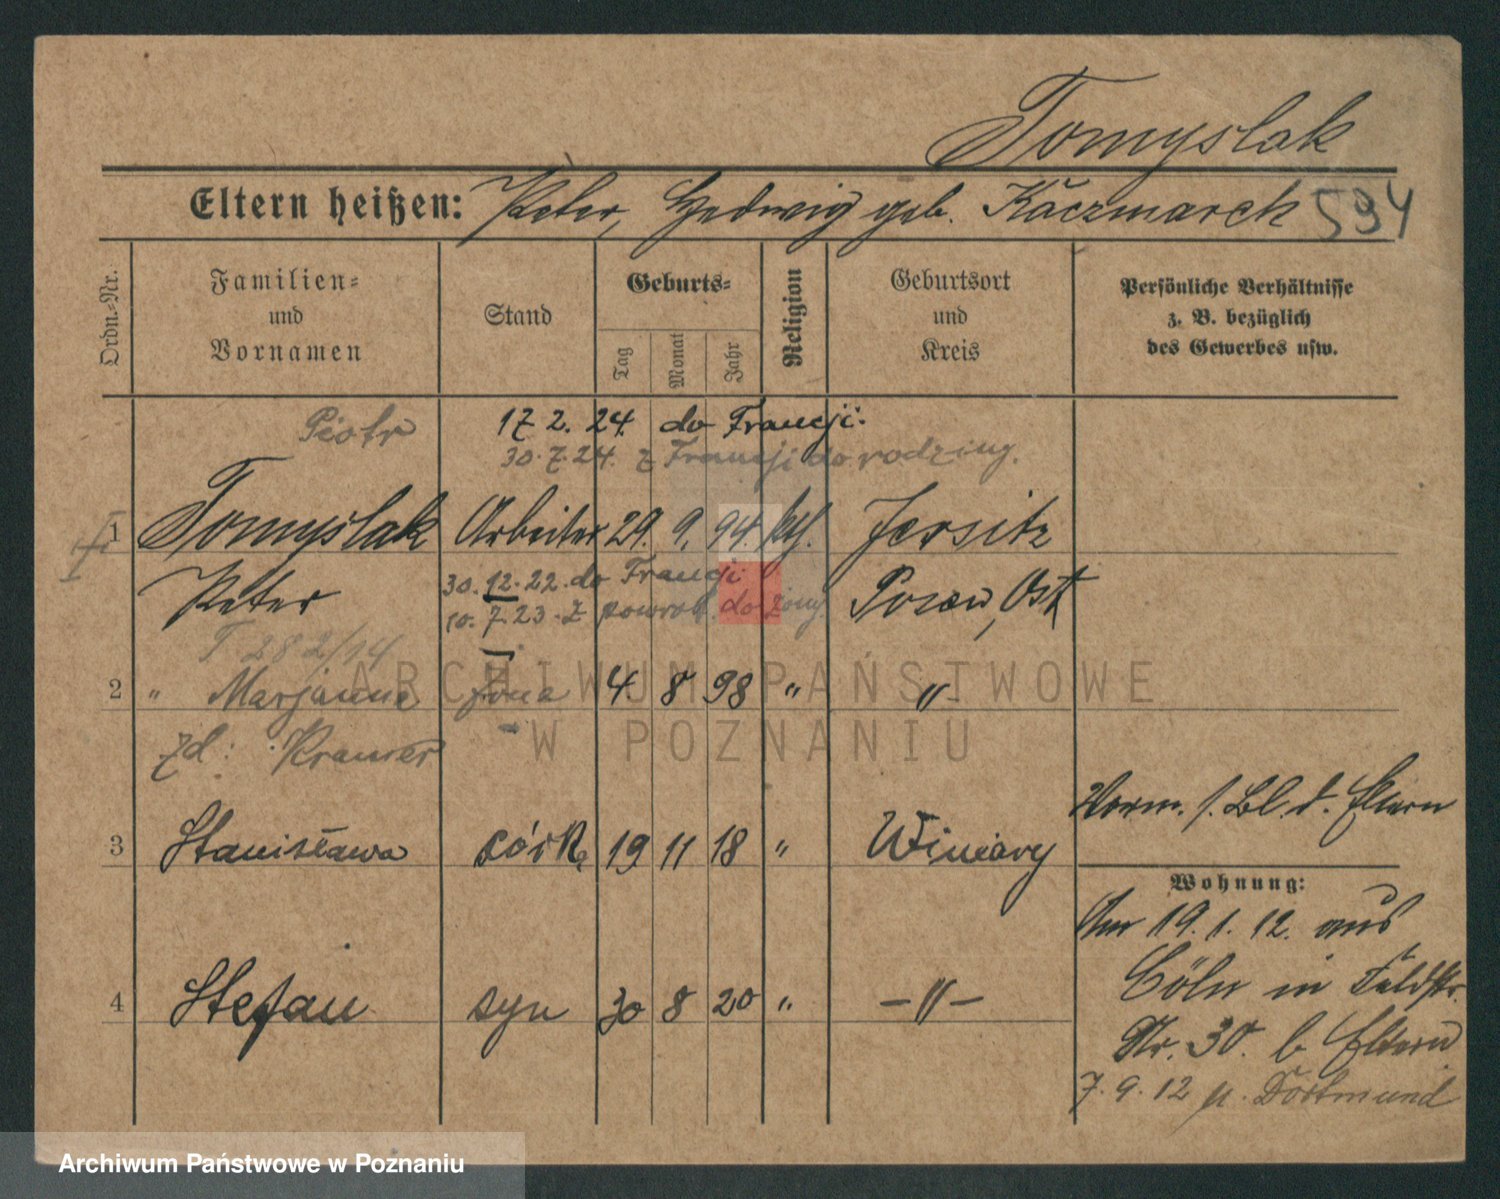 Tomyslak
Eltern heißen: Peter, Hedwig geb. Kaczmarek 594
Ordn.-Nr.
Familien-
und
Vornamen
Stand
Geburts-
Tag
Monat
Jahr
Religion
Geburtsort
und
Kreis
Persönliche Verhältnisse
z. B. bezüglich
des Gewerbes usw.
Piotr
17 2. 24. do Francji.
30.7.24. z Francji do rodziny.
1 Tomyslak Arbeiter 29. 9. 94. kth. Jersitz
30.12.22. do Francji
Peter
10.7.23. z powrot. do żony
Posen, Ost
T 282/14
2 " Marjanna żona 4 8 98 " "
zd: Kramer
Vorm. s. Bl. d. Eltern
3 Stanisława córka 19 11 18 " Winiary
Wohnung:
Am 19. 1. 12. aus
Cöln in Feldstr.
4 Stefan syn 30 8 20 " -"-
Nr. 30. b Eltern
7.9.12 n. Dortmund
ARCHIWUM PAŃSTWOWE
W POZNANIU
Archiwum Państwowe w Poznaniu